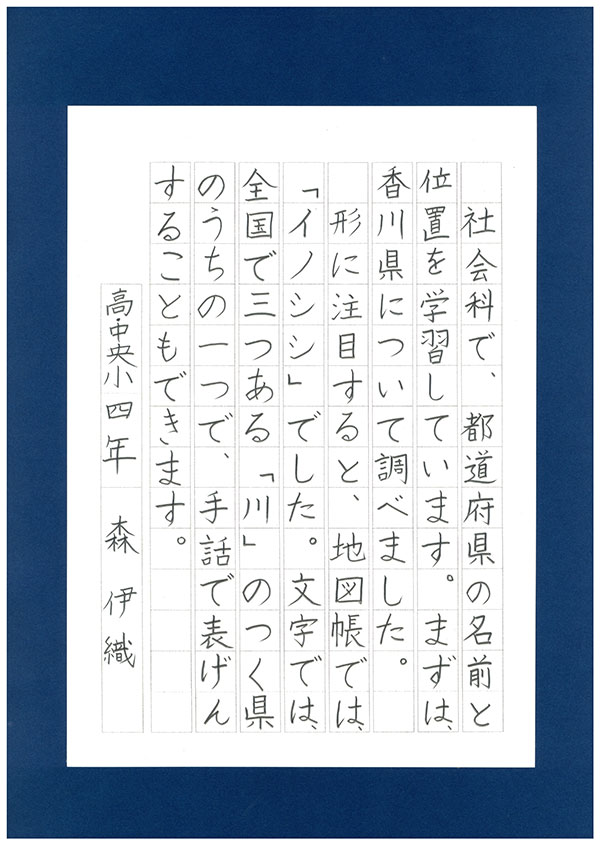 社会科で、都道府県の名前と
位置を学習しています。まずは、
香川県について調べました。
形に注目すると、地図帳では、
「イノシシ」でした。文字では、
全国で三つある「川」のつく県
のうちの一つで、手話で表げん
することもできます。
高・中央小四年 森伊織